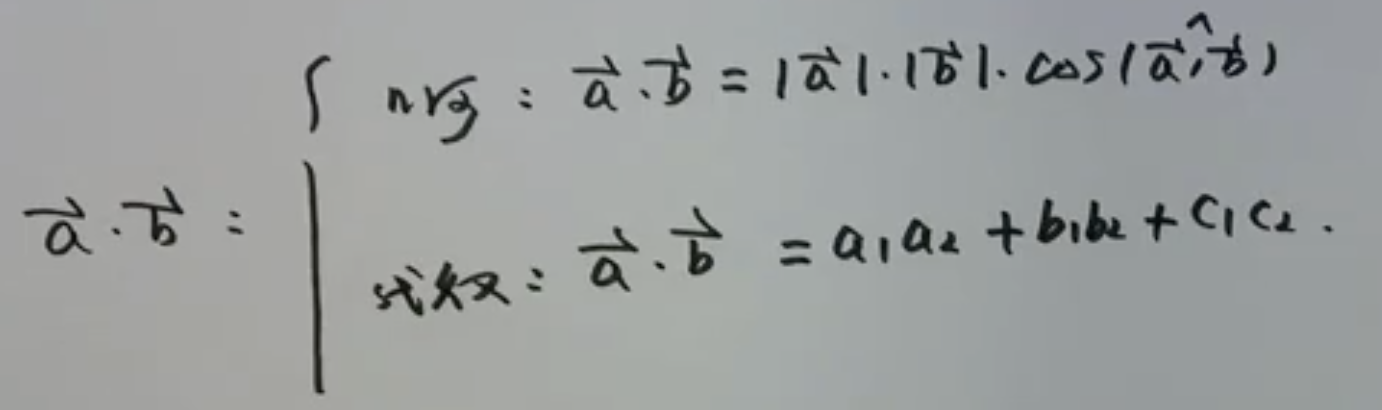 几何: a⃗·b⃗ = |a⃗|·|b⃗|·cos(a⃗,^b⃗)
a⃗·b⃗ :
代数: a⃗·b⃗ = a₁a₂ + b₁b₂ + c₁c₂.